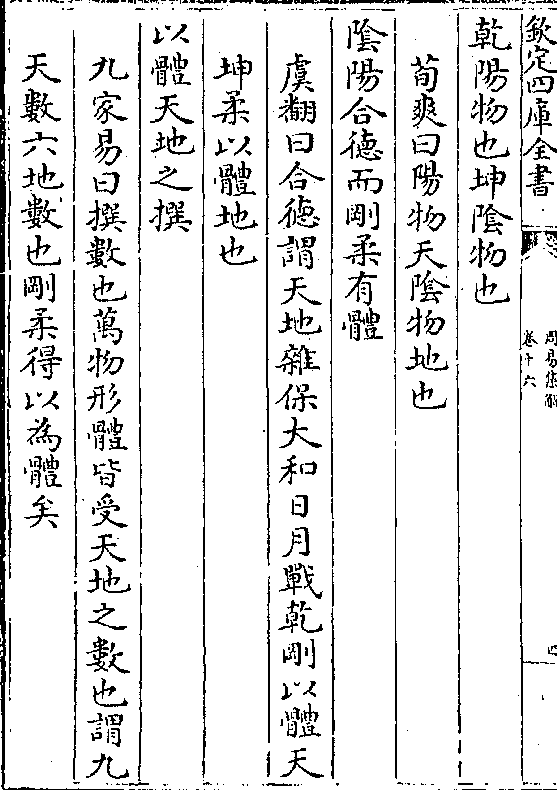 欽定四庫全書
周易集解
卷十六
四
乾陽物也坤陰物也
荀爽曰陽物天陰物地也
陰陽合德而剛柔有體
虞翻曰合德謂天地雜保大和日月戰乾剛以體天
坤柔以體地也
以體天地之撰
九家易曰撰數也萬物形體皆受天地之數也謂九
天數六地數也剛柔得以為體矣